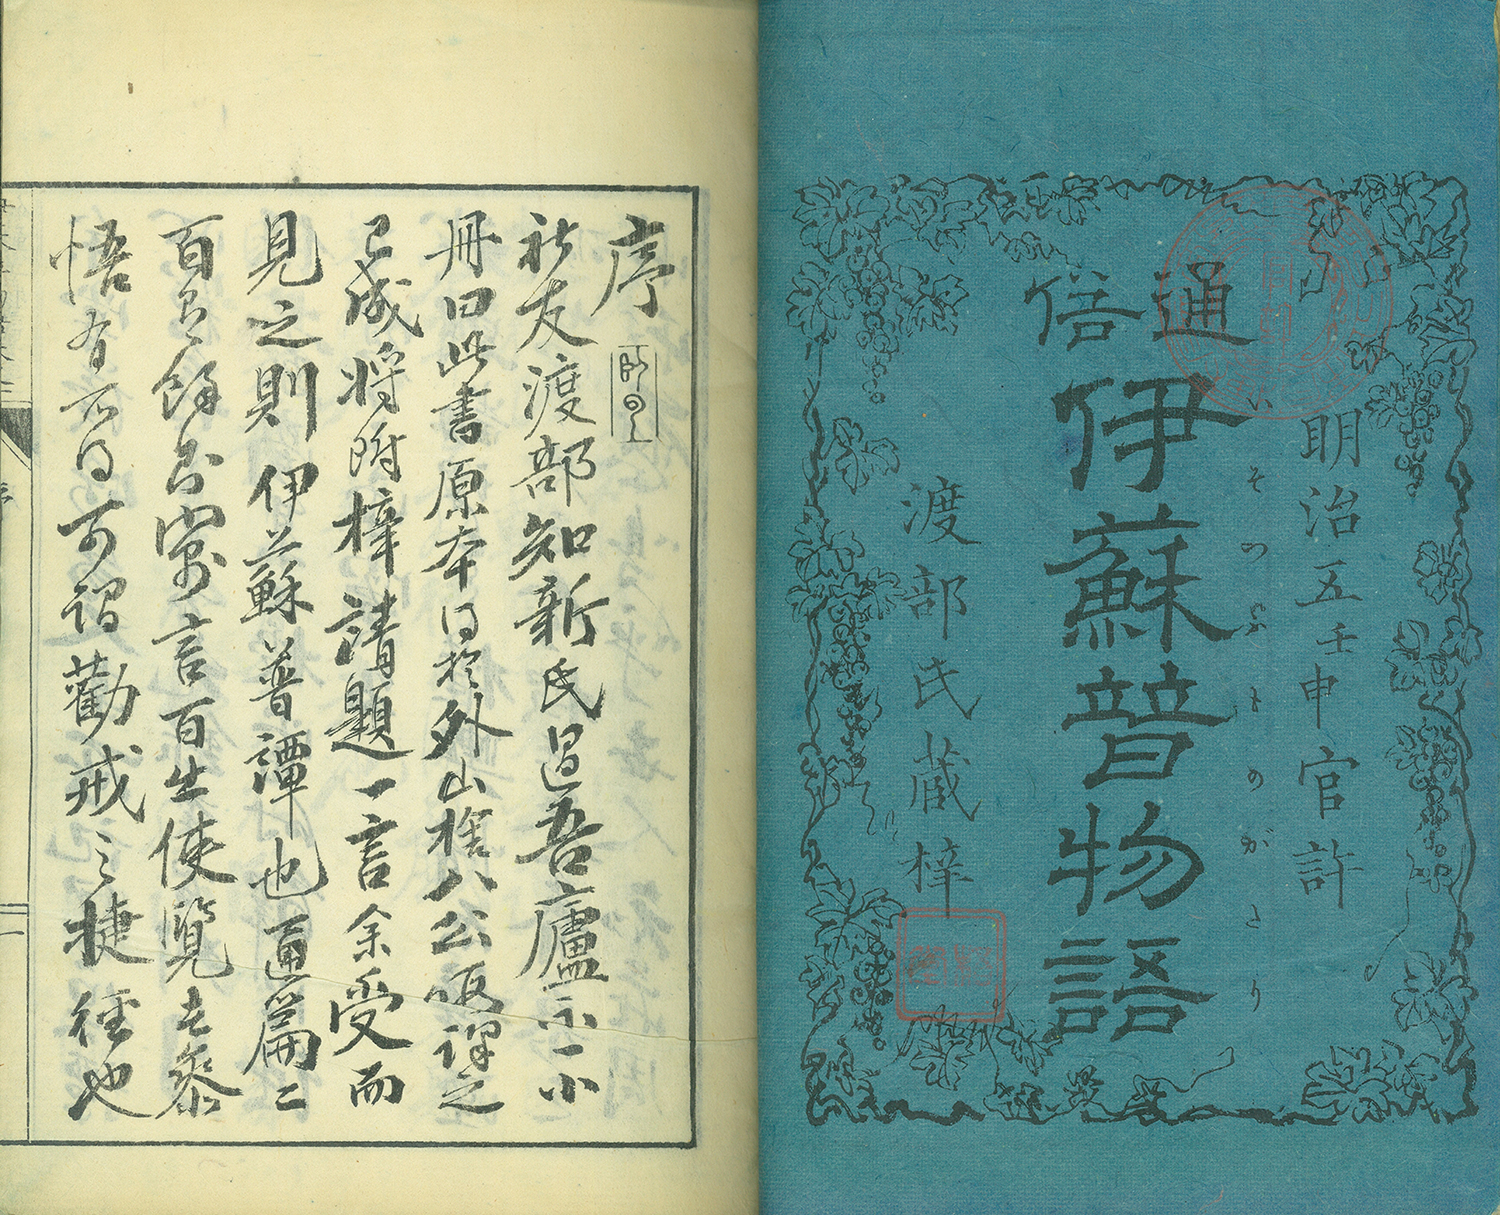 明治五壬申官許
通倍
伊蘇普物語
いそつぷものがたり
渡部氏蔵梓
序
社友渡部知新氏過吾廬示一小
冊曰此書原本得於外山捨八公頃譯之
已成将附梓請題一言余受而
見之則伊蘇普譚也通篇二
百有餘皆寓言百出使覧者發
悟有所得可謂勸戒之捷徑也